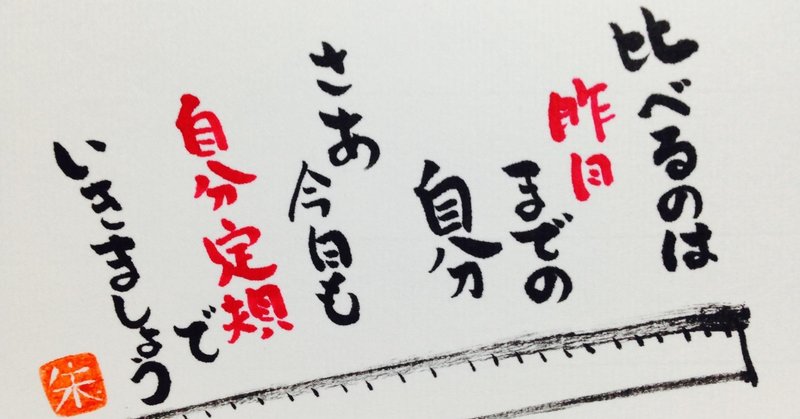 比べるのは
昨日までの
自分
さあ今日も
自分定規で
いきましょう
朱